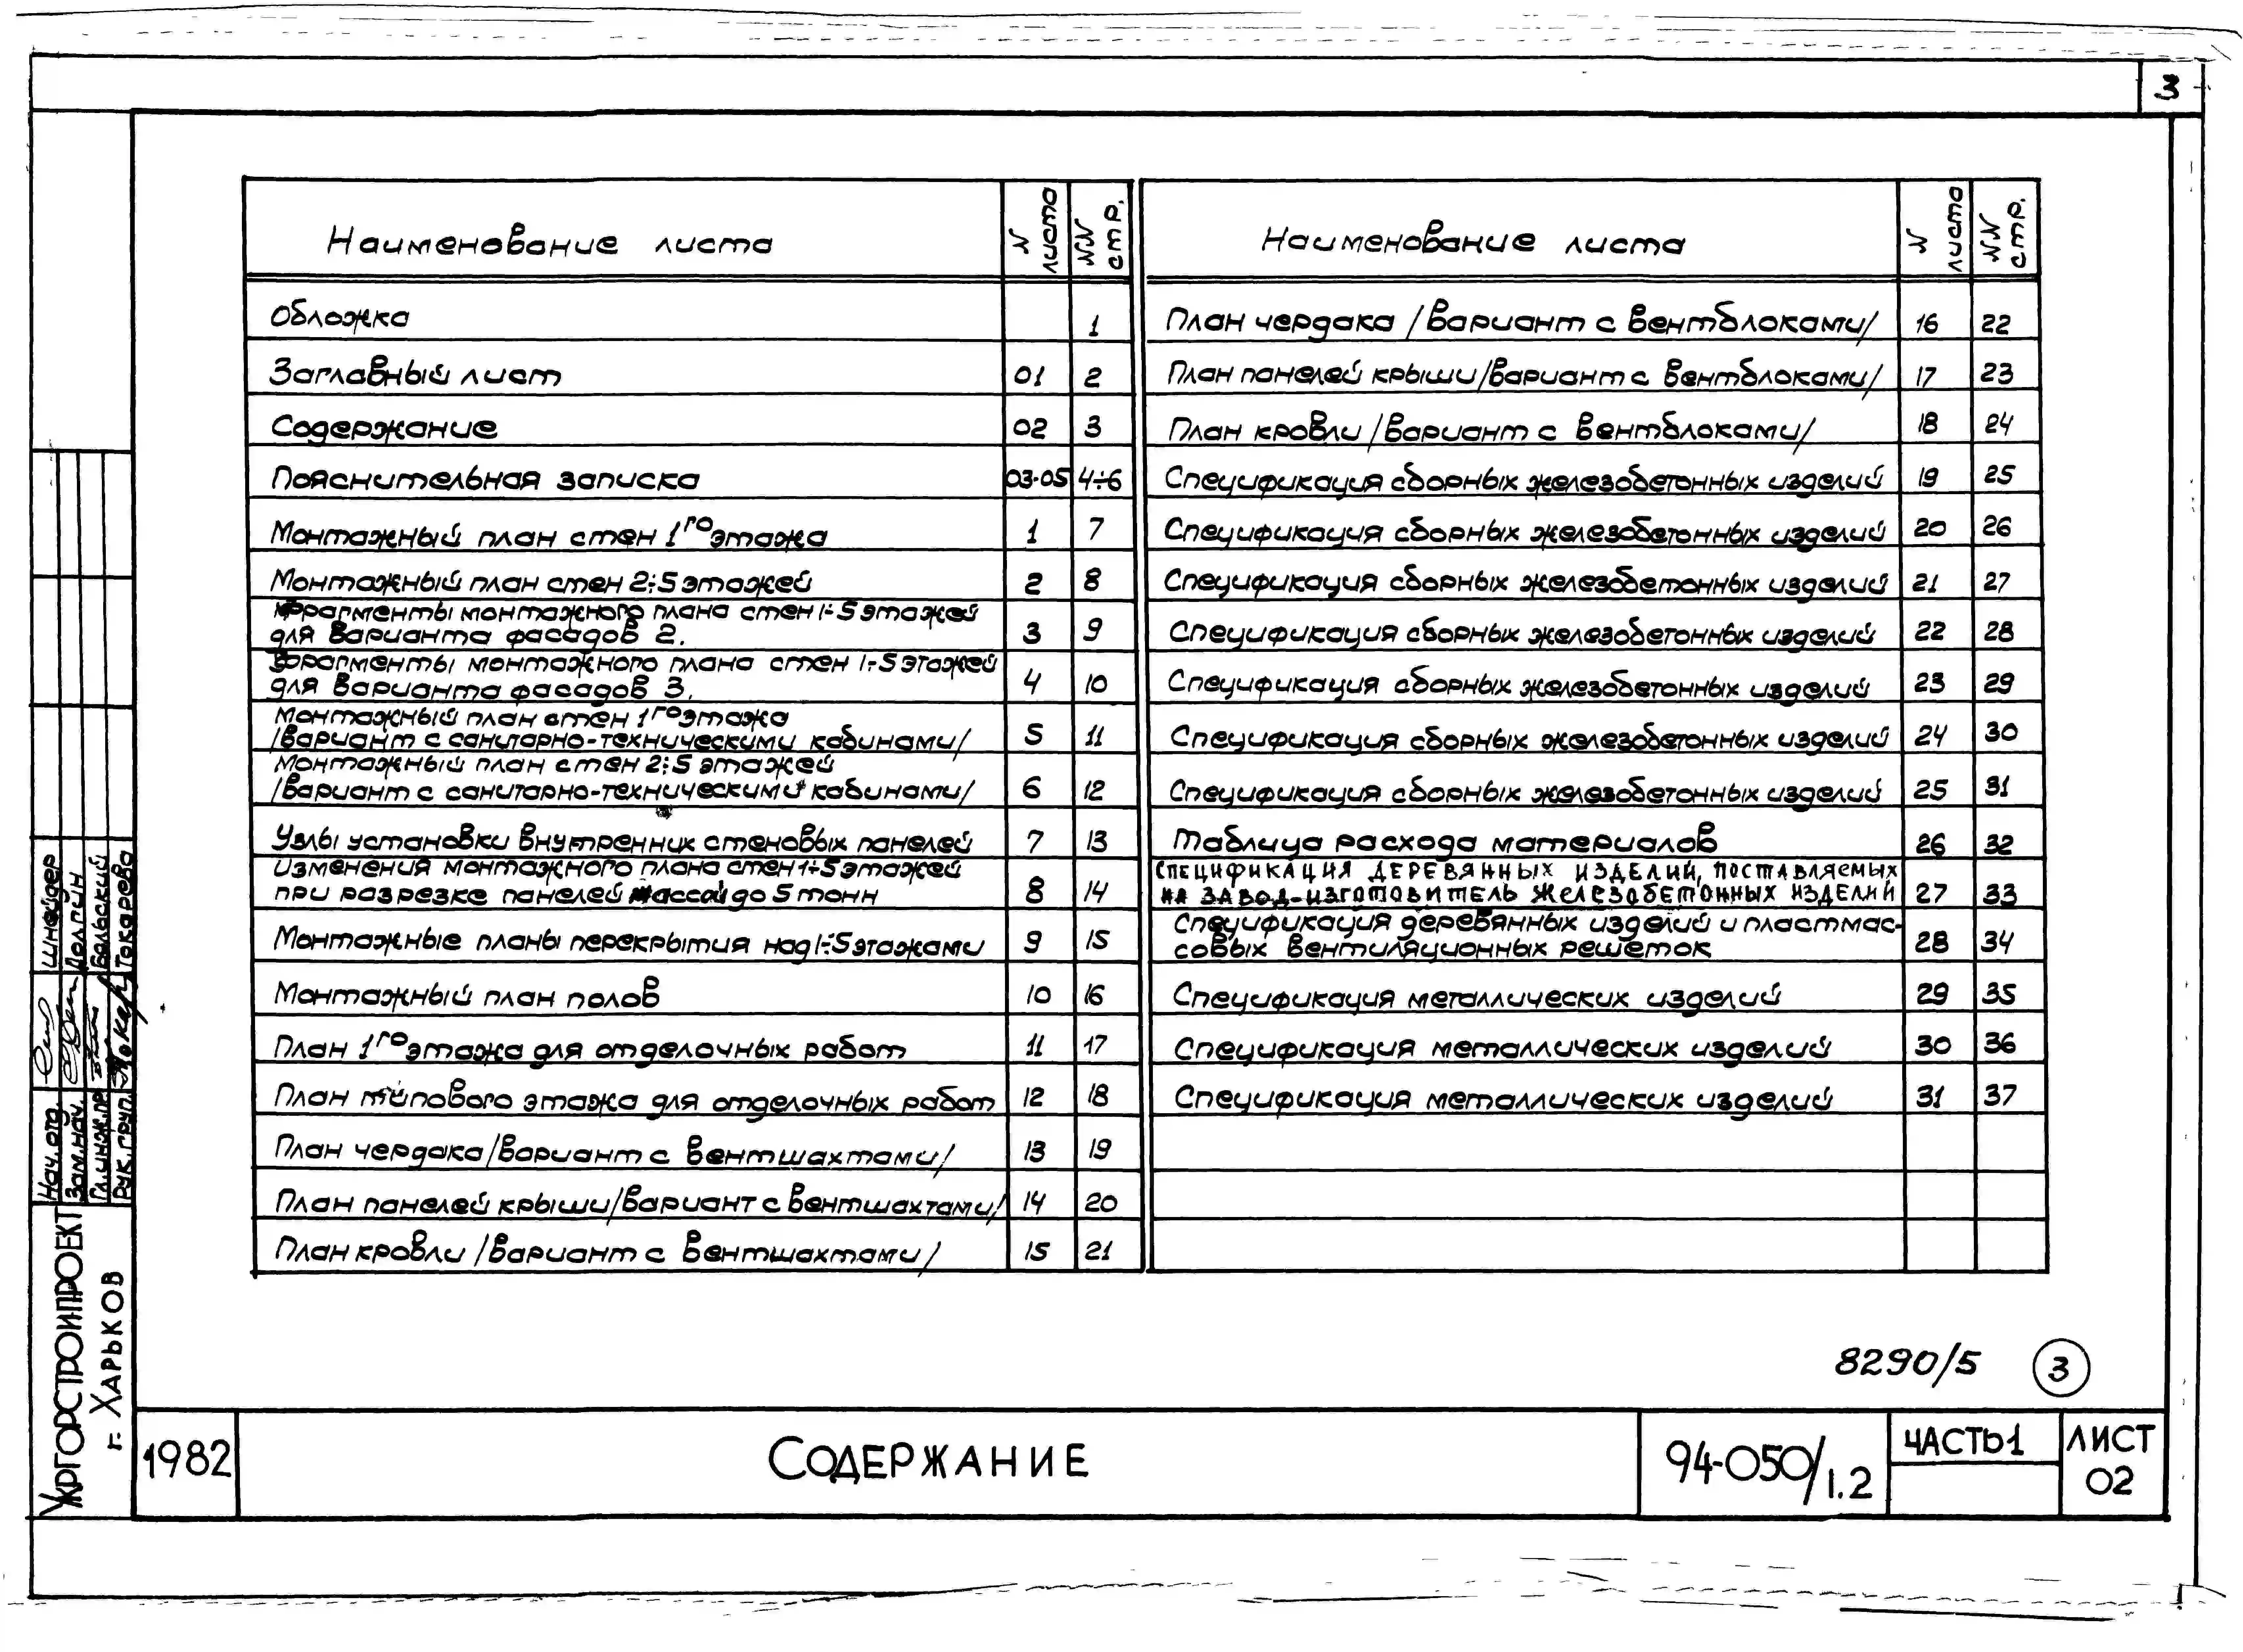 3
Наименование листа N листа NN стр.
Обложка 1
Заглавный лист 01 2
Содержание 02 3
Пояснительная записка 03-05 4÷6
Монтажный план стен 1го этажа 1 7
Монтажный план стен 2÷5 этажей 2 8
Фрагменты монтажного плана стен 1÷5 этажей
для варианта фасадов 2. 3 9
Фрагменты монтажного плана стен 1÷5 этажей
для варианта фасадов 3. 4 10
Монтажный план стен 1го этажа
/вариант с санитарно-техническими кабинами/ 5 11
Монтажный план стен 2÷5 этажей
/вариант с санитарно-техническими кабинами/ 6 12
Узлы установки внутренних стеновых панелей 7 13
Изменения монтажного плана стен 1÷5 этажей
при разрезке панелей массой до 5 тонн 8 14
Монтажные планы перекрытия над 1÷5 этажами 9 15
Монтажный план полов 10 16
План 1го этажа для отделочных работ 11 17
План типового этажа для отделочных работ 12 18
План чердака /вариант с вентшахтами/ 13 19
План панелей крыши /вариант с вентшахтами/ 14 20
План кровли /вариант с вентшахтами/ 15 21
Наименование листа N листа NN стр.
План чердака /вариант с вентблоками/ 16 22
План панелей крыши /вариант с вентблоками/ 17 23
План кровли /вариант с вентблоками/ 18 24
Спецификация сборных железобетонных изделий 19 25
Спецификация сборных железобетонных изделий 20 26
Спецификация сборных железобетонных изделий 21 27
Спецификация сборных железобетонных изделий 22 28
Спецификация сборных железобетонных изделий 23 29
Спецификация сборных железобетонных изделий 24 30
Спецификация сборных железобетонных изделий 25 31
Таблица расхода материалов 26 32
СПЕЦИФИКАЦИЯ ДЕРЕВЯННЫХ ИЗДЕЛИЙ, ПОСТАВЛЯЕМЫХ
НА ЗАВОД-ИЗГОТОВИТЕЛЬ ЖЕЛЕЗОБЕТОННЫХ ИЗДЕЛИЙ 27 33
Спецификация деревянных изделий и пластмас-
совых вентиляционных решеток 28 34
Спецификация металлических изделий 29 35
Спецификация металлических изделий 30 36
Спецификация металлических изделий 31 37
8290/5 3
УКРГОРСТРОЙПРОЕКТ
г. ХАРЬКОВ
Нач. отд. Шнейдер
Зам. нач. Долгин
Гл. инж. пр. Бельский
Рук. груп. Токарева
1982
СОДЕРЖАНИЕ
94-050/1.2
ЧАСТЬ 1
ЛИСТ
02